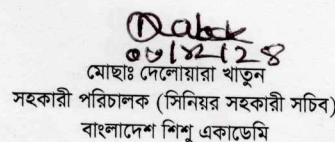 মোছাঃ দেলোয়ারা খাতুন
সহকারী পরিচালক (সিনিয়র সহকারী সচিব)
বাংলাদেশ শিশু একাডেমি